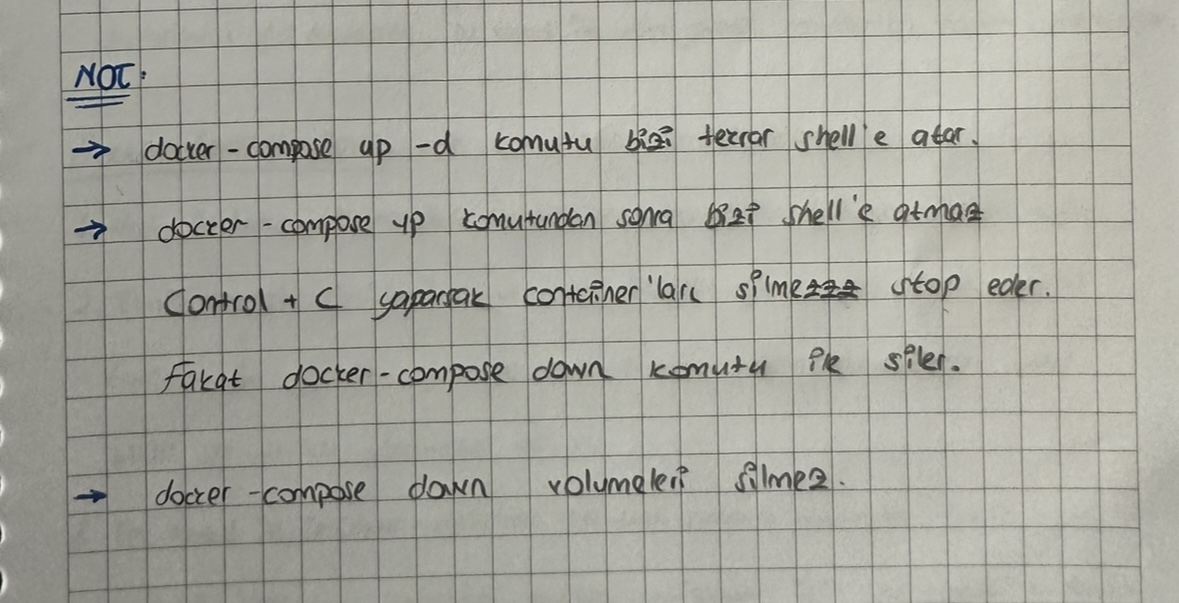 NOT:
→ docker-compose up -d komutu bizi tekrar shell'e atar.
→ docker-compose up komutundan sonra bizi shell'e atmaz
Control + C yaparsak container'ları silmezzz stop eder.
Fakat docker-compose down komutu ile siler.
→ docker-compose down volumeleri silmez.